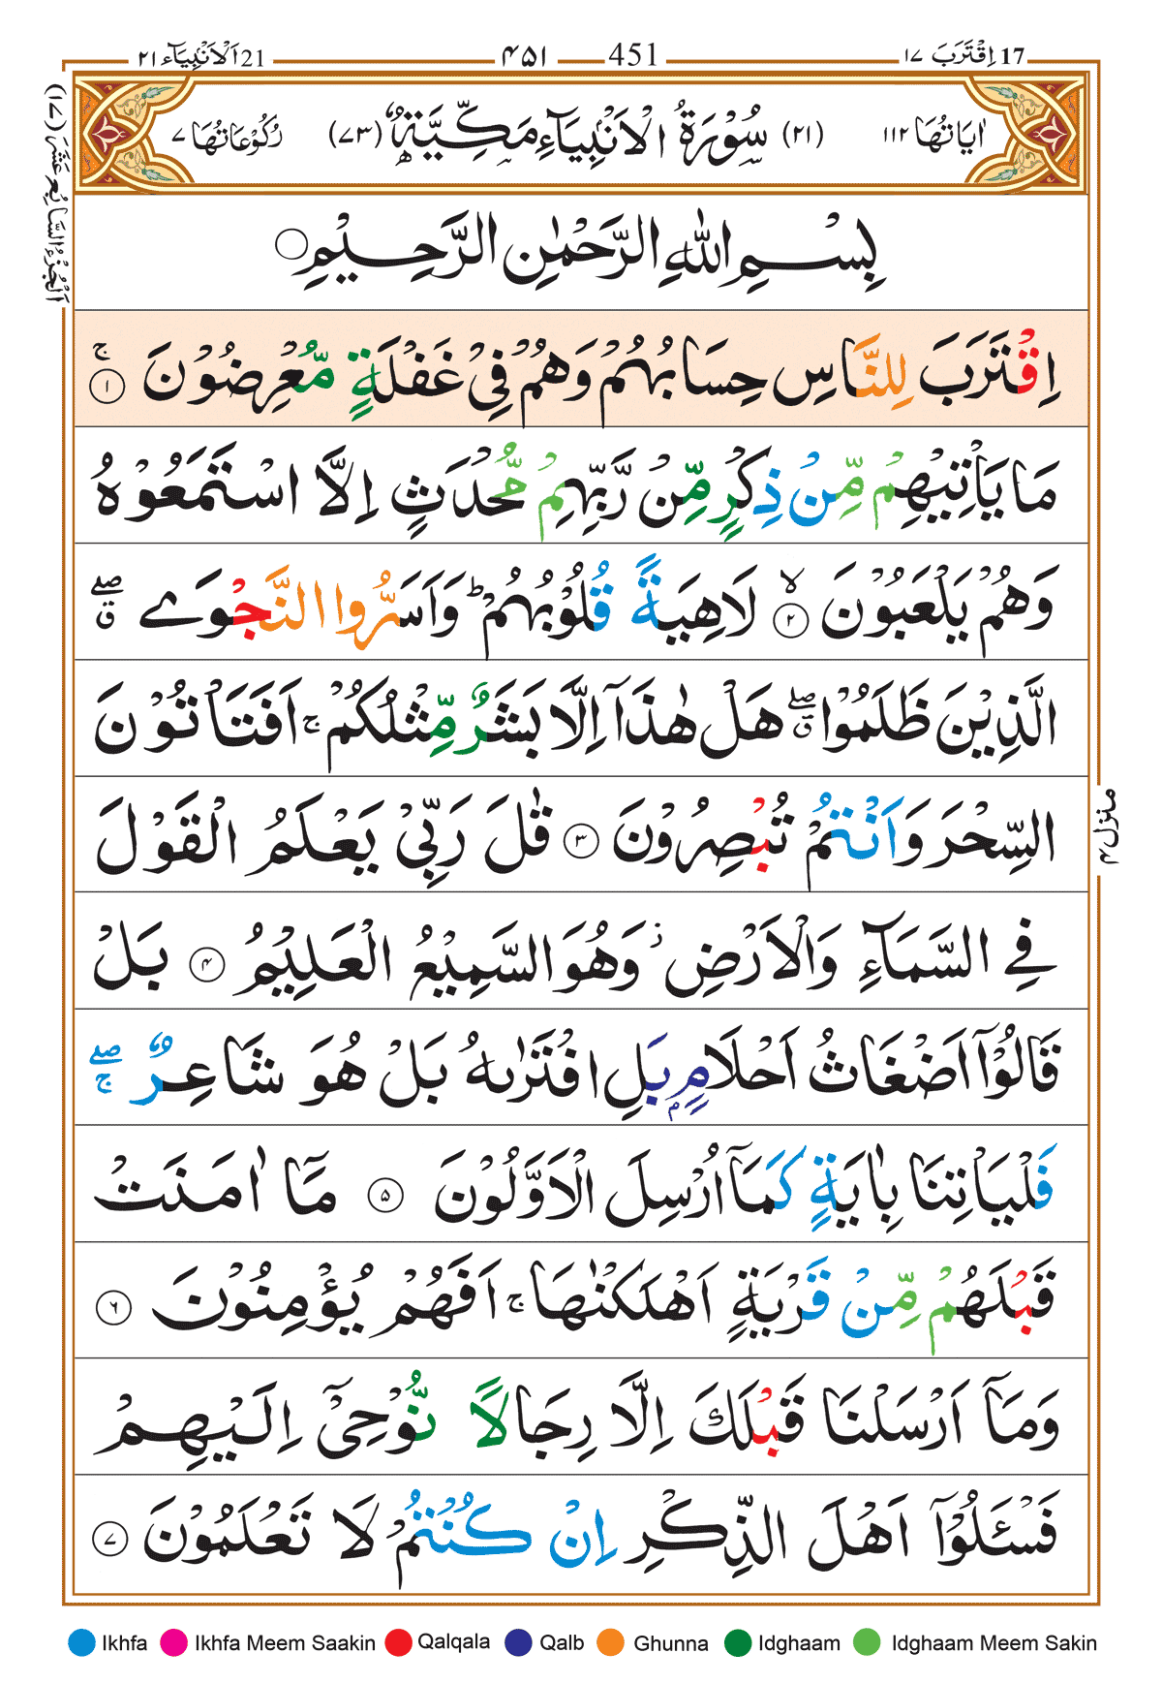 17 اِقْتَرَبَ ١٧ 451 — ٤٥١ 21 اَلْاَنْۢبِيَآء ٢١
اٰيَاتُهَا ١١٢ (٢١) سُوْرَةُ الْاَنْۢبِيَآءِ مَكِّيَّةٌ (٧٣) رُكُوْعَاتُهَا ٧
اَلْجُزْءُ السَّابِعَ عَشَرَ (١٧)
بِسْمِ اللّٰهِ الرَّحْمٰنِ الرَّحِيْمِ ۝
اِقْتَرَبَ لِلنَّاسِ حِسَابُهُمْ وَهُمْ فِىْ غَفْلَةٍ مُّعْرِضُوْنَ ۚ ١
مَا يَاْتِيْهِمْ مِّنْ ذِكْرٍ مِّنْ رَّبِّهِمْ مُّحْدَثٍ اِلَّا اسْتَمَعُوْهُ
وَهُمْ يَلْعَبُوْنَ ۙ ٢ لَاهِيَةً قُلُوْبُهُمْ ؕ وَاَسَرُّوا النَّجْوَے ۖق
الَّذِيْنَ ظَلَمُوْا ۖق هَلْ هٰذَاۤ اِلَّا بَشَرٌ مِّثْلُكُمْ ۚ اَفَتَاْتُوْنَ
السِّحْرَ وَاَنْتُمْ تُبْصِرُوْنَ ٣ قٰلَ رَبِّىْ يَعْلَمُ الْقَوْلَ
فِى السَّمَآءِ وَالْاَرْضِ ز وَهُوَ السَّمِيْعُ الْعَلِيْمُ ٤ بَلْ
قَالُوْۤا اَضْغَاثُ اَحْلَامٍۭ بَلِ افْتَرٰىهُ بَلْ هُوَ شَاعِرٌ ۖۚ
فَلْيَاْتِنَا بِاٰيَةٍ كَمَاۤ اُرْسِلَ الْاَوَّلُوْنَ ٥ مَاۤ اٰمَنَتْ
قَبْلَهُمْ مِّنْ قَرْيَةٍ اَهْلَكْنٰهَا ۚ اَفَهُمْ يُؤْمِنُوْنَ ٦
وَمَاۤ اَرْسَلْنَا قَبْلَكَ اِلَّا رِجَالًا نُّوْحِىْۤ اِلَيْهِمْ
فَسْـَٔلُوْۤا اَهْلَ الذِّكْرِ اِنْ كُنْتُمْ لَا تَعْلَمُوْنَ ٧
منزل ٤
Ikhfa Ikhfa Meem Saakin Qalqala Qalb Ghunna Idghaam Idghaam Meem Sakin